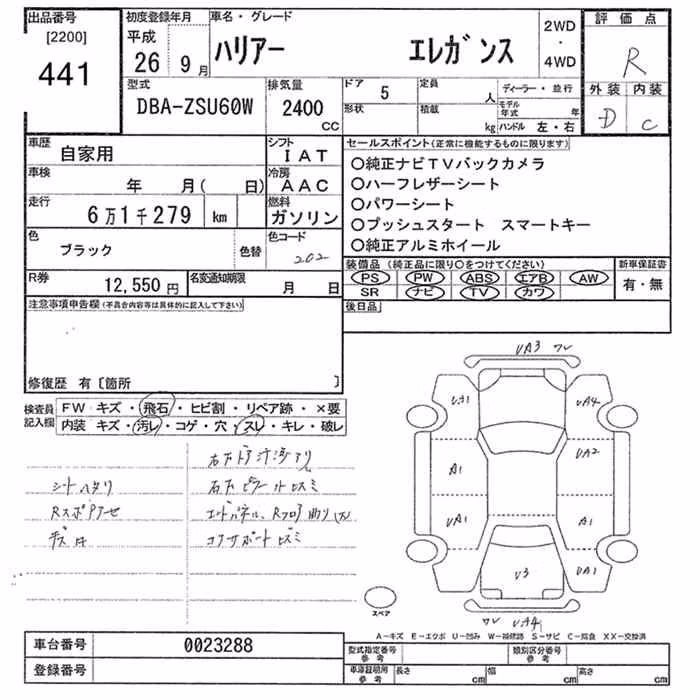 出品番号
[2200]
441
初度登録年月
平成
26 9月
車名・グレード
ハリアー エレガンス
2WD
・
4WD
評価点
R
外装 内装
D C
型式
DBA-ZSU60W
排気量
2400
CC
ドア 5
形状
定員 人
積載 kg
ディーラー・並行
モデル年式 年
ハンドル 左・右
車歴
自家用
シフト
IAT
車検 年 月( 日)
冷房
AAC
走行
6万1千279 km
燃料
ガソリン
色
ブラック
色替
色コード
202
R券
12,550円
名変通知期限
月 日
セールスポイント(正常に機能するものに限ります)
〇純正ナビTVバックカメラ
〇ハーフレザーシート
〇パワーシート
〇プッシュスタート スマートキー
〇純正アルミホイール
装備品(純正品に限り〇をつけてください)
PS PW ABS エアB AW
SR ナビ TV カワ
新車保証書
有・無
後日品
注意事項申告欄(不具合内容等は具体的に記入して下さい)
修復歴 有〔箇所 〕
検査員
記入欄
FW キズ・飛石・ヒビ割・リペア跡・×要
内装 キズ・汚レ・コゲ・穴・スレ・キレ・破レ
シートハタリ
右下ピラー
コアサポート
UA3 ワレ
UA1
UA4
A1
UA2
UA1
A1
UA1
U3
ワレ UA4
スペア
A-キズ E-エクボ U-凹み W-補修跡 S-サビ C-腐食 XX-交換済
車台番号 0023288
登録番号
型式指定番号
参考
類別区分番号
参考
車庫証明用
参考
長さ cm
幅 cm
高さ cm